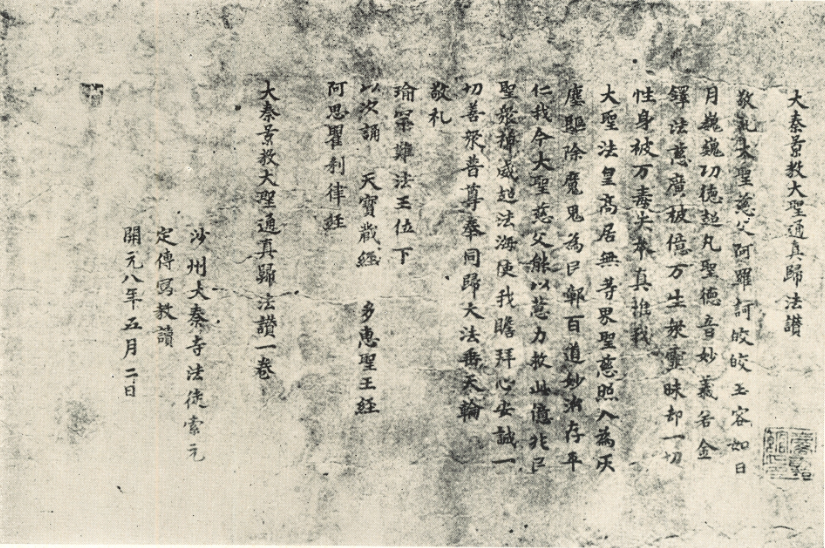 大秦景教大聖通真歸法讚
敬礼大聖慈父阿羅訶皎皎玉容如日
月巍巍功德超凡聖德音妙義若金
鐸法慈廣被億万生眾靈昧却一切
性身被万毒失本真惟我
大聖法皇高居無等界聖慈照入為灰
塵驅除魔鬼為民鄣百道妙治存平
仁我今大聖慈父能以慈力救此億兆民
聖眾神威超法海使我瞻拜心安誠一
切善眾普尊奉同歸大法垂天輪
敬礼
瑜罕難法王位下
以次誦 天寶藏經 多惠聖王經
阿思瞿利律經
大秦景教大聖通真歸法讚一卷
沙州大秦寺法徒索元
定傳寫教讀
開元八年五月二日